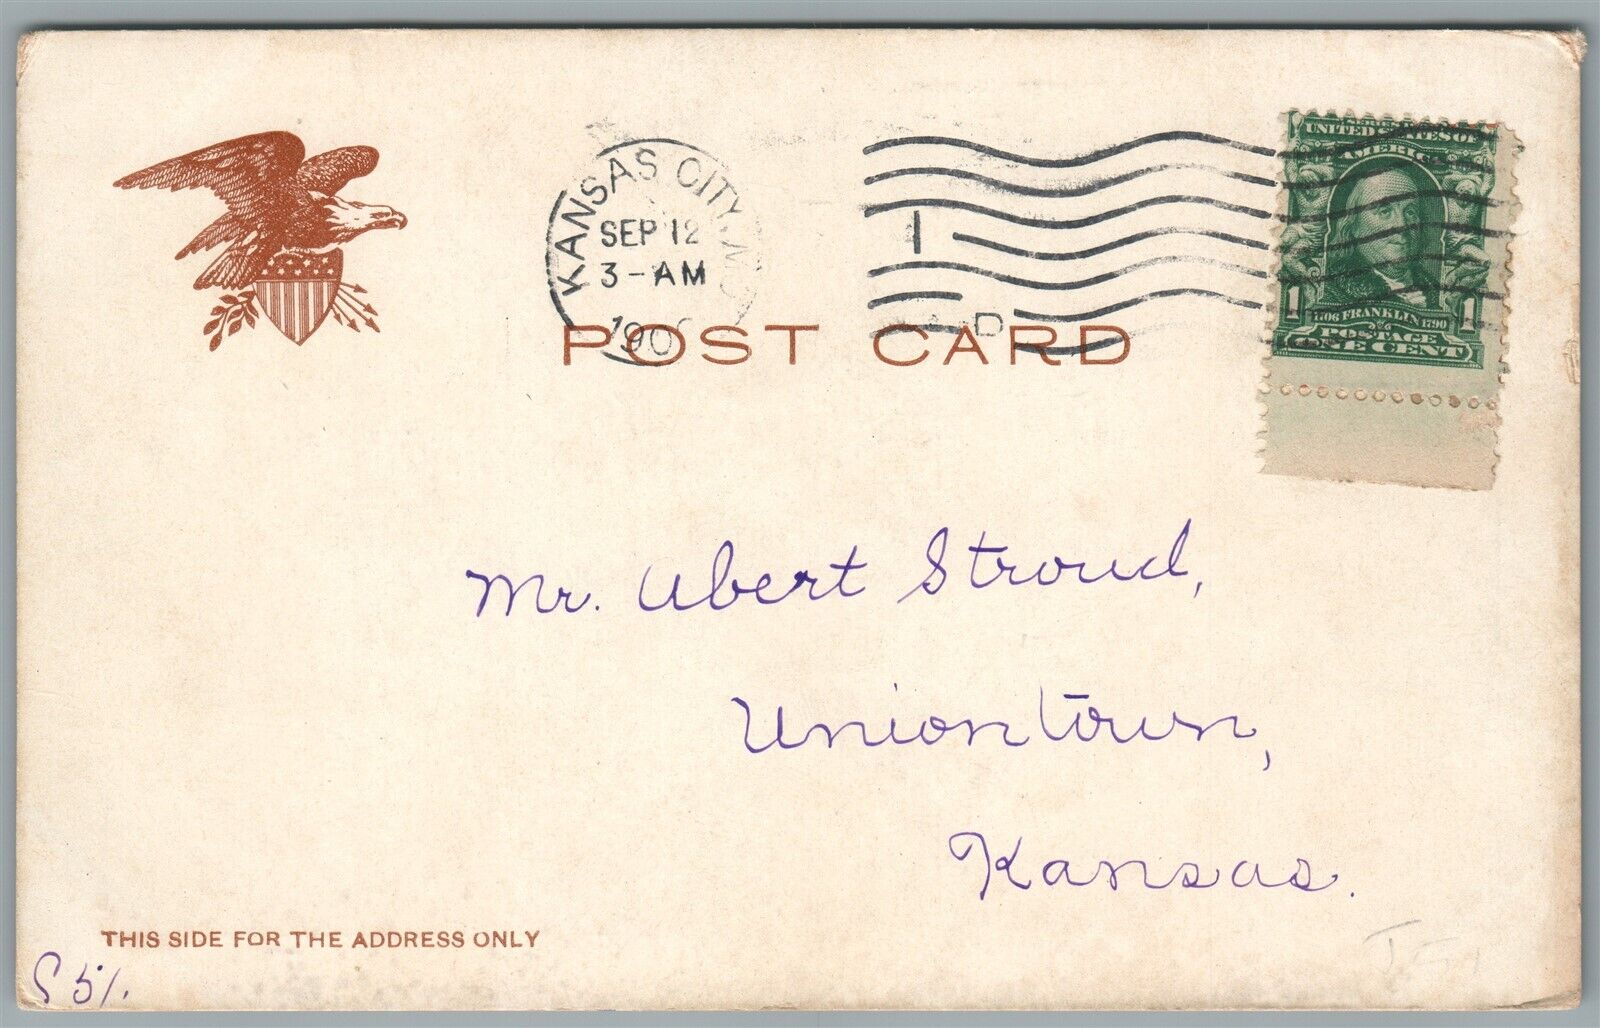 KANSAS CITY, MO
SEP 12
3-AM
190
1
D
SERIES
UNITED STATES OF
AMERICA
1 1706 FRANKLIN 1790 1
POSTAGE
ONE CENT
POST CARD
Mr. Abert Stroud,
Uniontown,
Kansas.
THIS SIDE FOR THE ADDRESS ONLY
S 51.